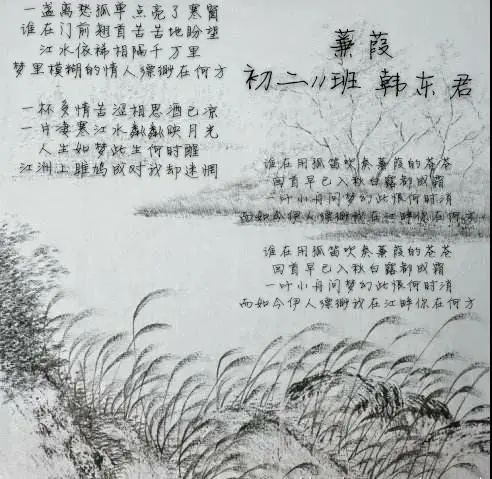 蒹葭
初二11班 韩东君
一盏离愁孤单点亮了寒窗
谁在门前翘首苦苦地盼望
江水依稀相隔千万里
梦里模糊的情人缥缈在何方
一杯多情苦涩相思酒已凉
一片凄寒江水粼粼映月光
人生如梦此生何时醒
江洲上雎鸠成对我却迷惘
谁在用孤笛吹奏蒹葭的苍苍
回首早已入秋白露都成霜
一叶小舟问梦幻此恨何时消
而如今伊人缥缈我在江畔你在何方
谁在用孤笛吹奏蒹葭的苍苍
回首早已入秋白露都成霜
一叶小舟问梦幻此恨何时消
而如今伊人缥缈我在江畔你在何方